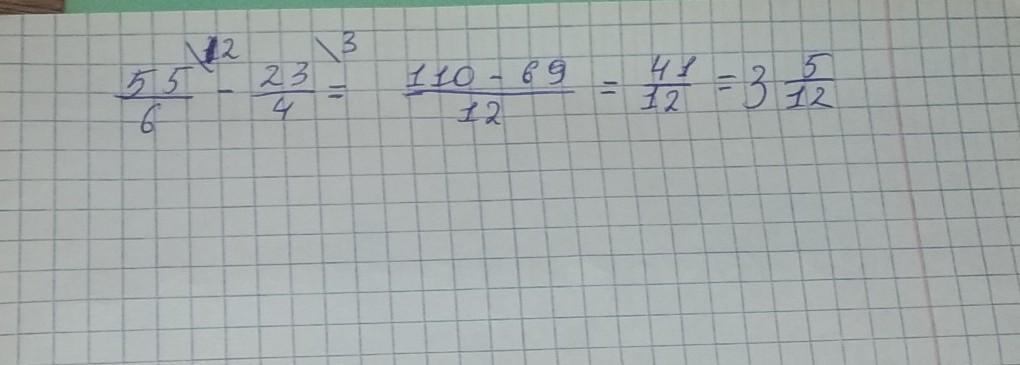 55/6 \2 - 23/4 \3 = 110 - 69/12 = 41/12 = 3 5/12